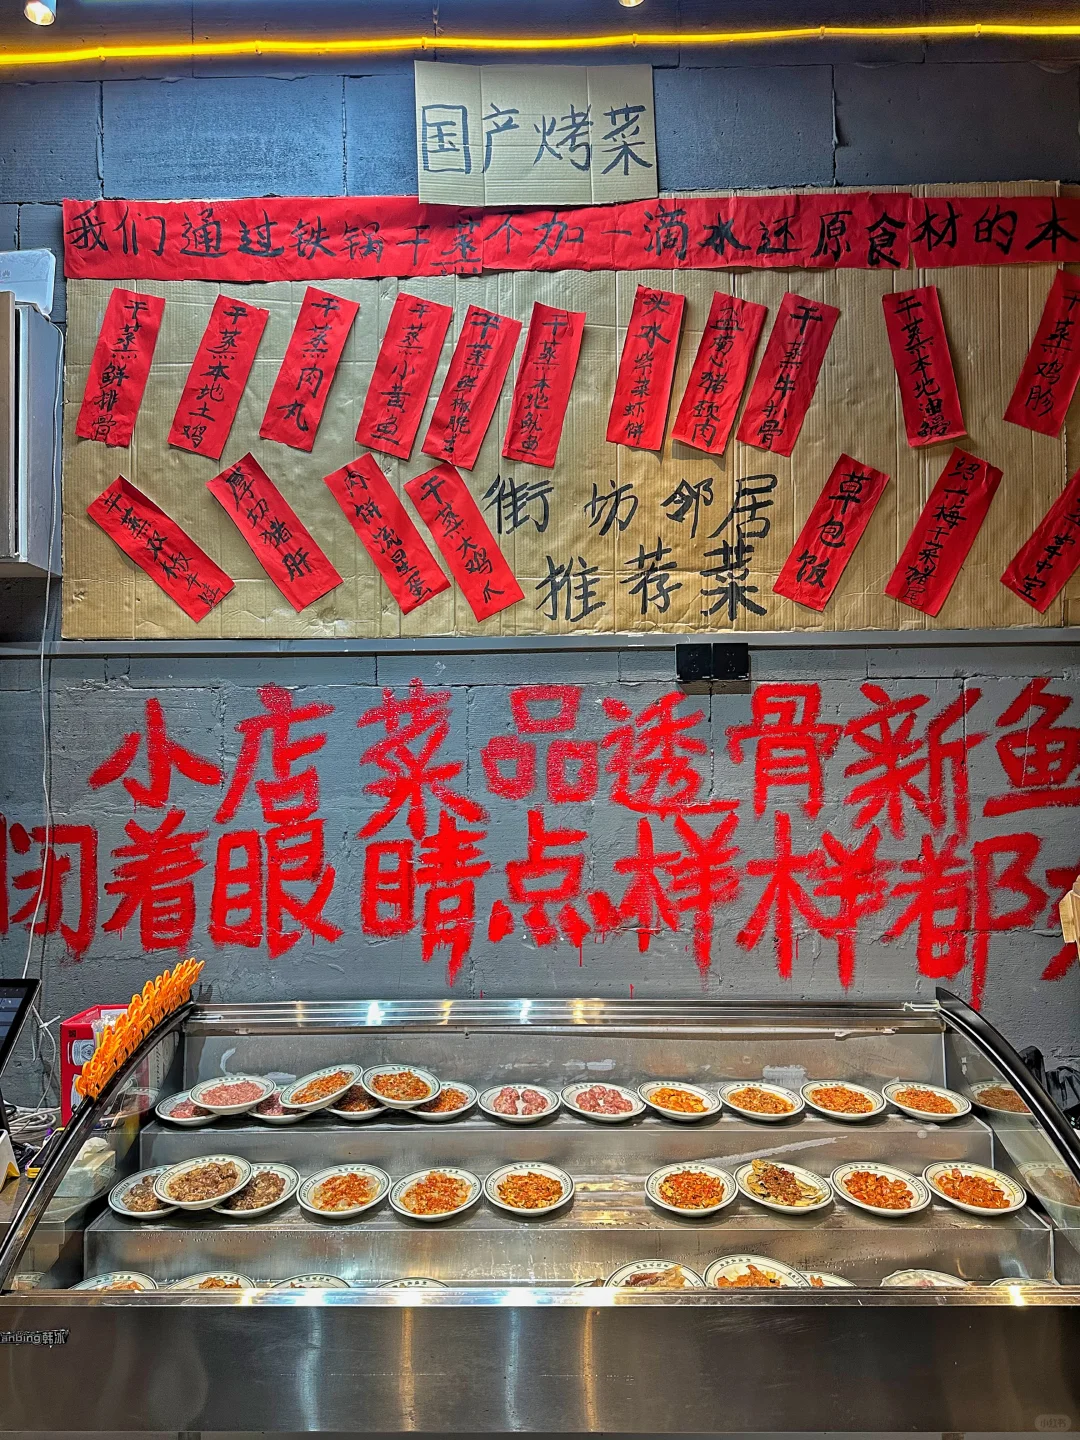 国产烤菜
我们通过铁锅干蒸不加一滴水还原食材的本
干蒸鲜排骨
干蒸本地土鸡
干蒸肉丸
干蒸小黄鱼
干蒸鲜椒脆舌
干蒸本地鱿鱼
头水紫菜虾饼
盐葱猪颈肉
干蒸牛肋骨
干蒸本地油鳗
干蒸鸡胗
干蒸双椒牛肚
厚切猪肝
肉饼流星蛋
干蒸大鸡爪
街坊邻居
推荐菜
草包饭
绍兴梅干菜猪尾
小店菜品透骨新鱼
闭着眼睛点样样都
anbing韩冰
小红书